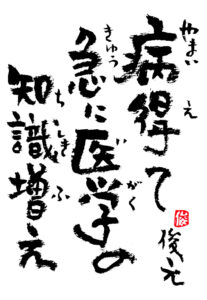 病得て
やまい え
急に医学の
きゅう い がく
知識増え
ち しき ふ
俊元
俊